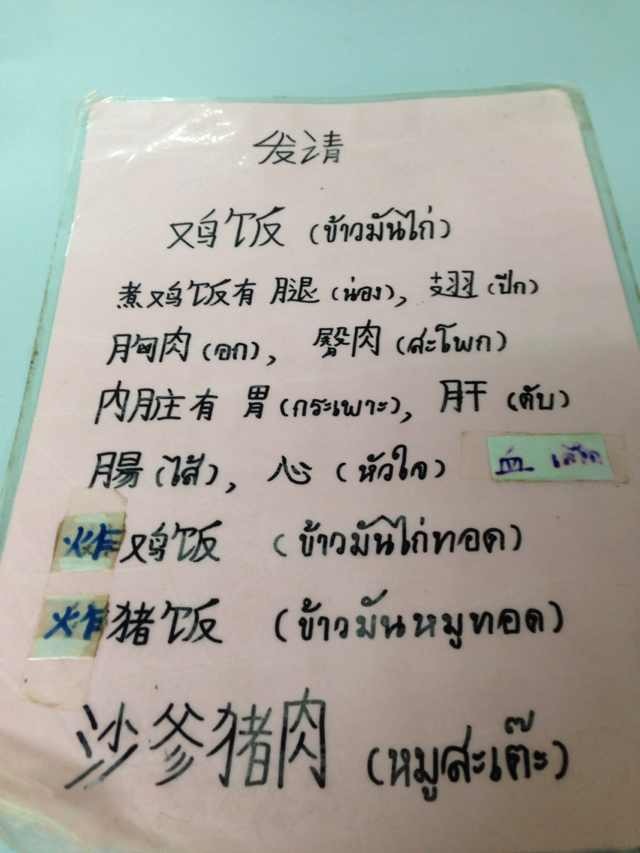 发请
鸡饭 (ข้าวมันไก่)
煮鸡饭有 腿 (น่อง), 翅 (ปีก)
胸肉 (อก), 臀肉 (สะโพก)
内脏有 胃 (กระเพาะ), 肝 (ตับ)
腸 (ไส้), 心 (หัวใจ) 血 เลือด
炸鸡饭 (ข้าวมันไก่ทอด)
炸猪饭 (ข้าวมันหมูทอด)
沙爹猪肉 (หมูสะเต๊ะ)